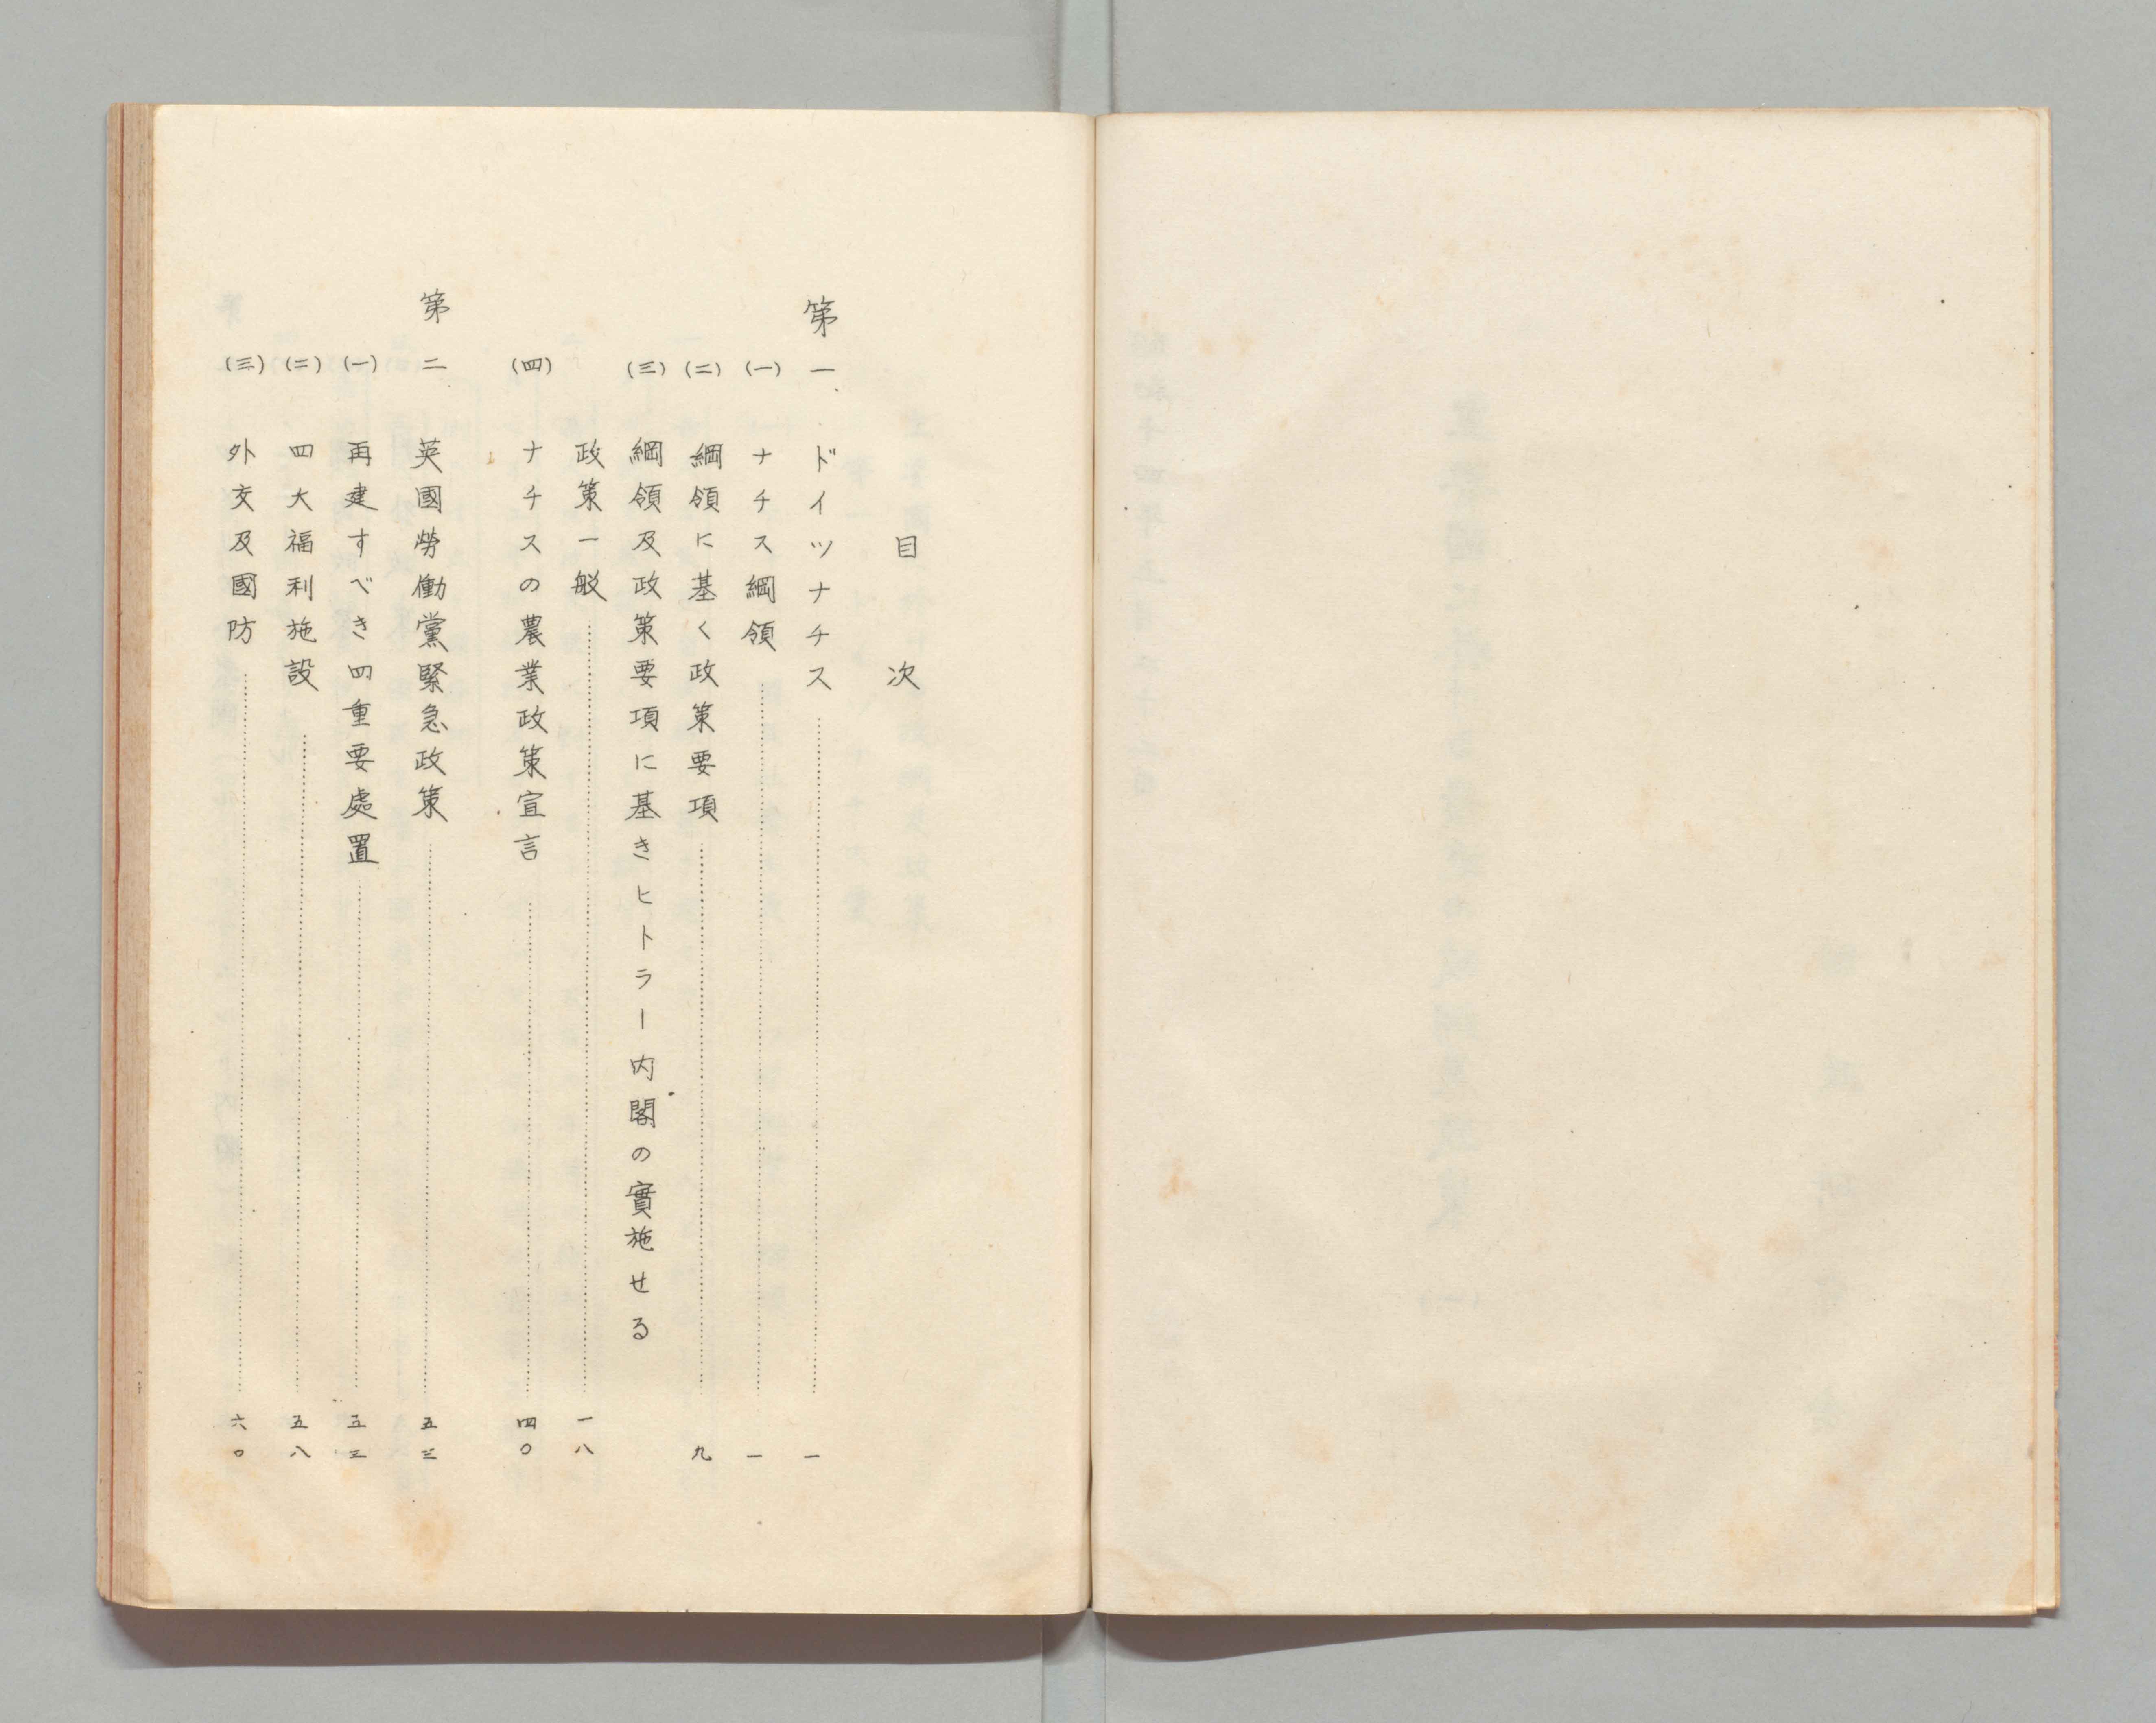 目次
第一、ドイツナチス……一
(一)ナチス綱領……一
(二)綱領に基く政策要項……九
(三)綱領及政策要項に基きヒトラー内閣の實施せる
政策一般……一八
(四)ナチスの農業政策宣言……四〇
第二 英國勞働黨緊急政策……五三
(一)再建すべき四重要處置……五三
(二)四大福利施設……五八
(三)外交及國防……六〇